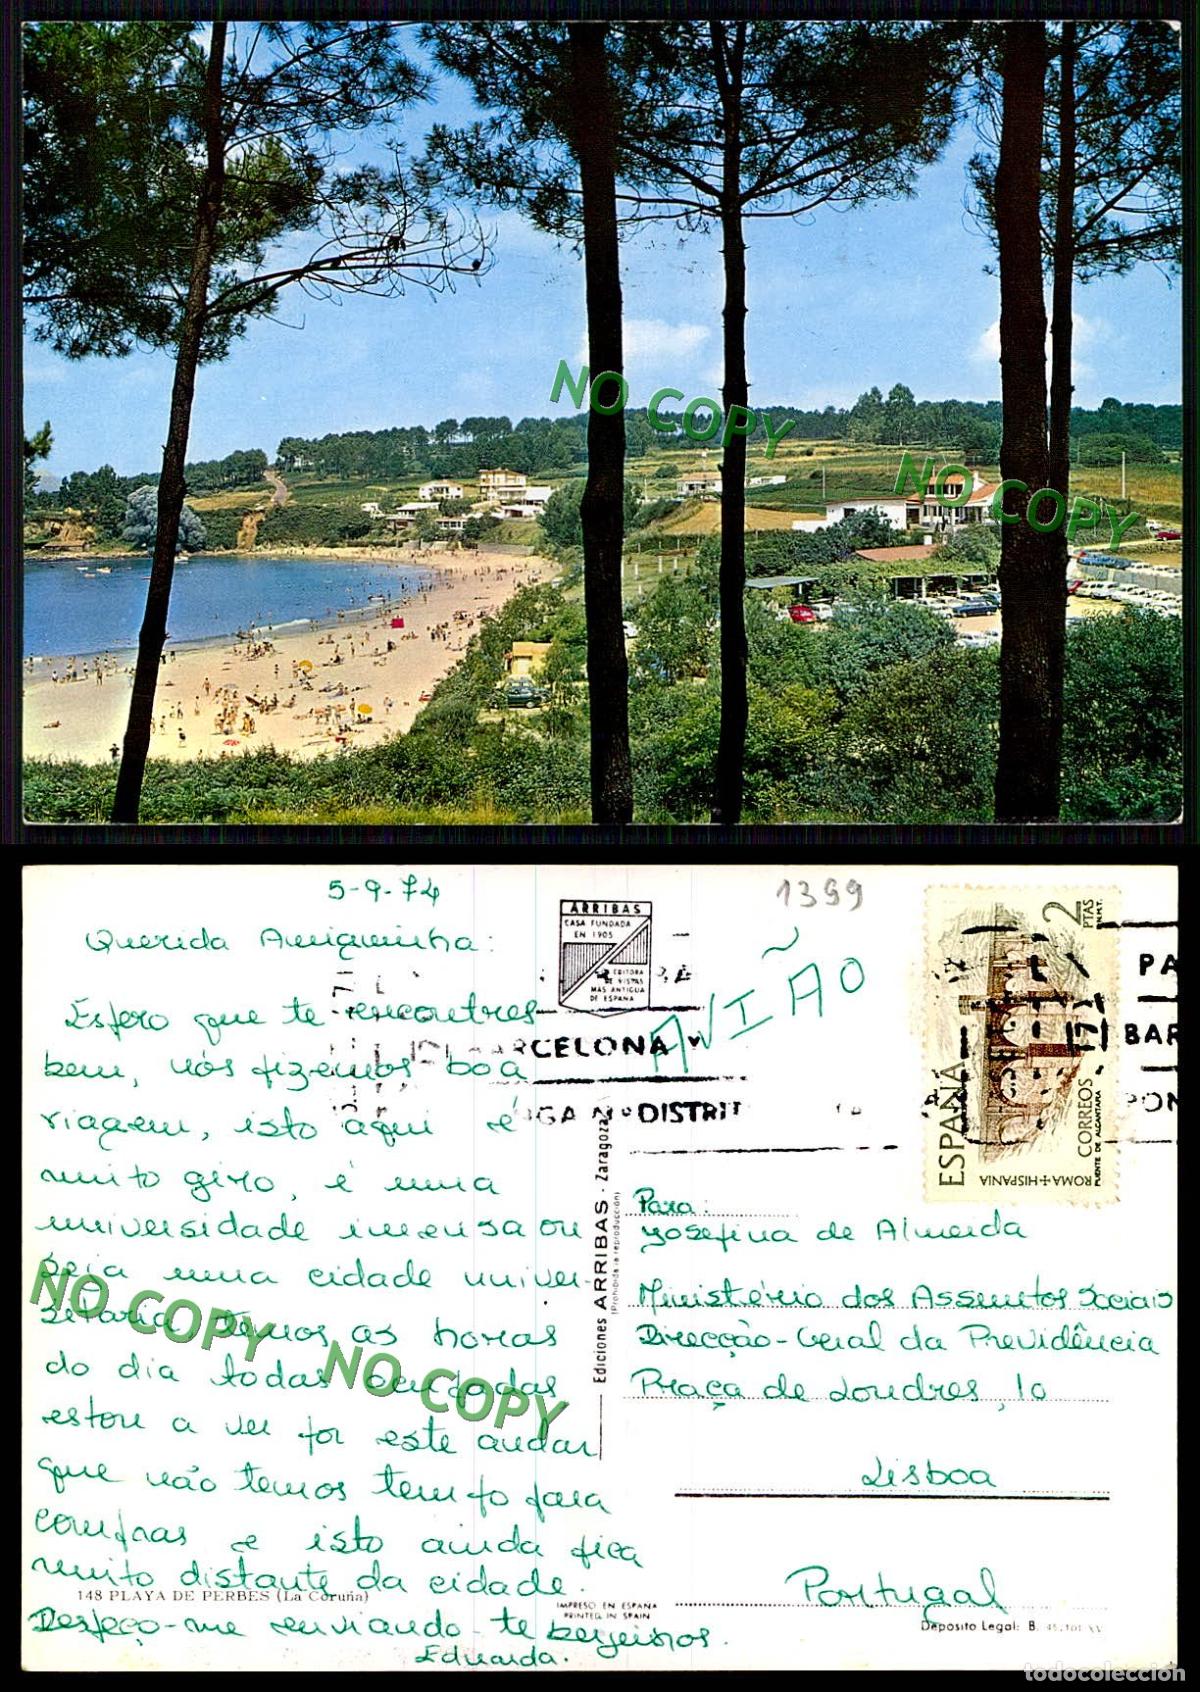 NO COPY
NO COPY
5-9-74
1399
Querida Amiguinha:
Espero que te encontres
bem, nós fizemos boa
viagem, isto aqui é
muito giro, é uma
universidade imensa ou
seja uma cidade univer-
sitária, temos as horas
do dia todas ocupadas
estou a ver por este andar
que não temos tempo para
compras e isto ainda fica
muito distante da cidade.
Despeço-me enviando-te beijinhos.
Eduarda.
148 PLAYA DE PERBES (La Coruña)
NO COPY
NO COPY
ARRIBAS
CASA FUNDADA
EN 1905
EDITORA
DE VISTAS
MAS ANTIGUA
DE ESPAÑA
AVIÃO
BARCELONA
DISTRIT
PA
BAR
PON
2
PTAS
ESPAÑA
CORREOS
PUENTE DE ALCANTARA
ROMA+HISPANIA
Ediciones ARRIBAS - Zaragoza
(Prohibida la reproducción)
Para:
Josefina de Almeida
Ministério dos Assuntos Sociais
Direcção-Geral da Previdência
Praça de Londres, 10
Lisboa
Portugal
IMPRESO EN ESPAÑA
PRINTED IN SPAIN
Depósito Legal: B.
todocoleccion